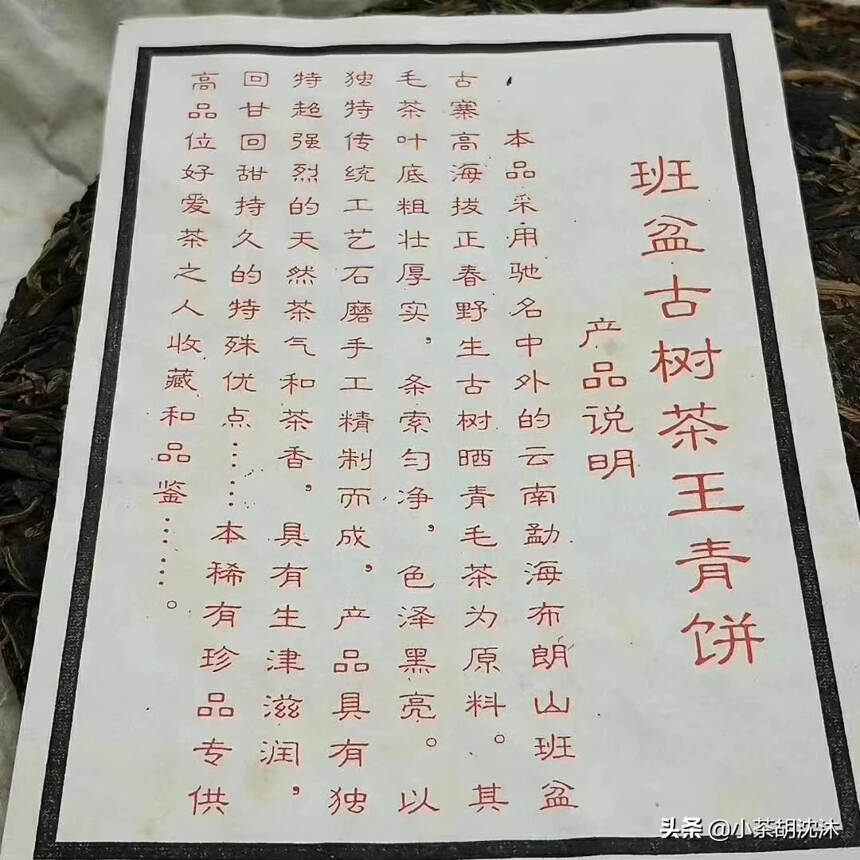 班盆古树茶王青饼
产品说明
本品采用驰名中外的云南勐海布朗山班盆
古寨高海拔正春野生古树晒青毛茶为原料。其
毛茶叶底粗壮厚实，条索匀净，色泽黑亮。以
独特传统工艺石磨手工精制而成，产品具有独
特超强烈的天然茶气和茶香，具有生津滋润，
回甘回甜持久的特殊优点……本稀有珍品专供
高品位好爱茶之人收藏和品鉴……。
头条 @小茶胡沈沐